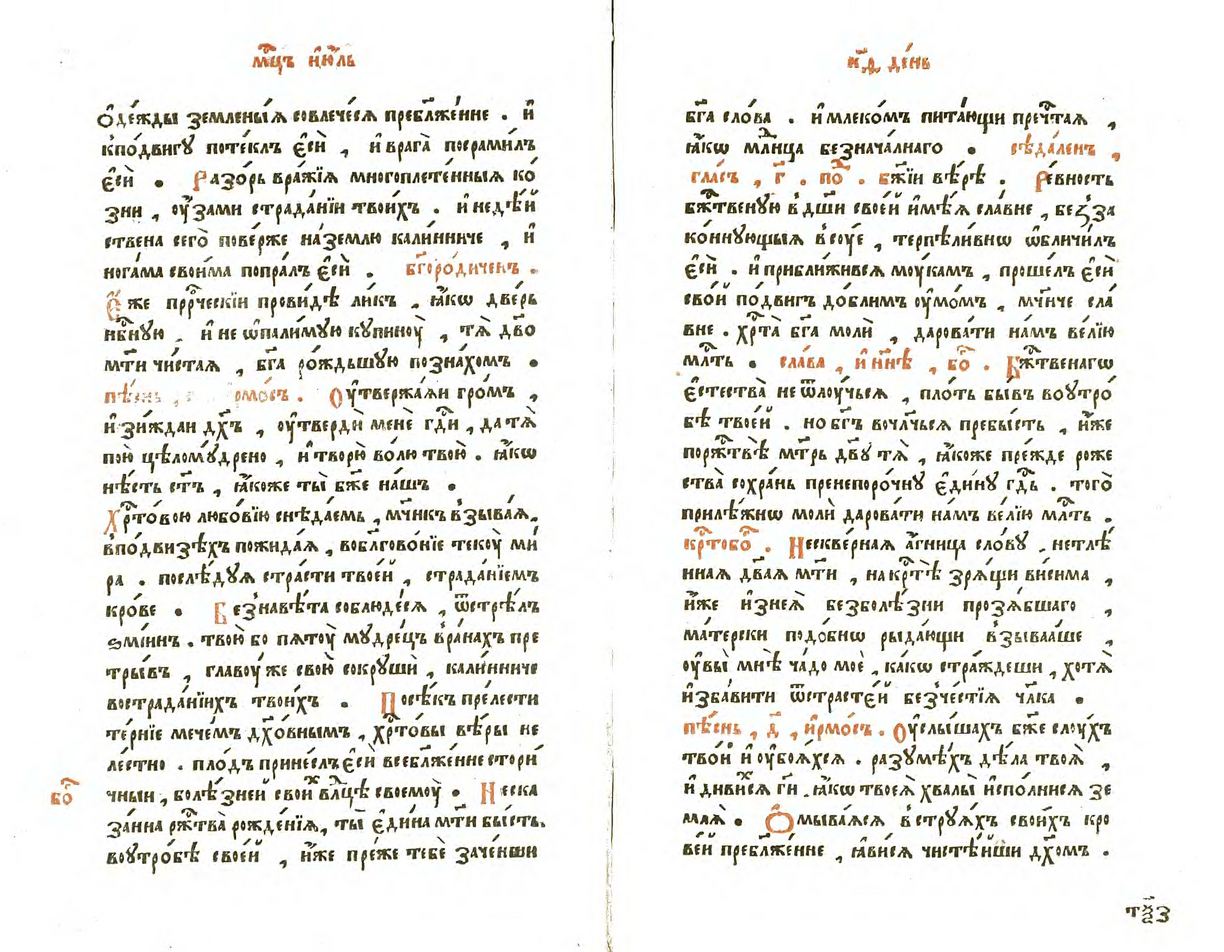 мц҃ъ і҆ю́ль
Ѻ҆де́жды земленыѧ совлече́сѧ пребл҃же́нне . и҆
кпо́двигꙋ поте́клъ є҆сѝ , и҆ врага̀ посрами́лъ
є҆сѝ . Разо́рь вра́жїѧ многоплете́нныѧ ко́
зни , оу҆́зами страда́нїи твои́хъ . и҆ недѣ́й
ствена сего̀ пове́рже на́землю кали́нниче , и҆
нога́ма свои́ма попра́лъ є҆сѝ . бг҃оро́диченъ .
Є҆́же прⷪ҇рческїи прови́дѣ ли́къ , ꙗ҆́кѡ две́рь
нб҃нꙋю , и҆ не ѡ҆пали́мꙋю кꙋпинꙋ̀ , тѧ̀ дв҃о
мт҃и чи́стаѧ , бг҃а ро́ждьшꙋю позна́хомъ .
пѣ́снь , рмо́съ . Оу҆твержа́ѧи гро́мъ ,
и҆ зи́ждаи дх҃ъ , оу҆твердѝ менѐ гдⷭ҇и , да тѧ̀
пою̀ цѣломꙋ́дрено , и҆ творю̀ во́лю твою̀ . ꙗ҆́кѡ
нѣ́сть ст҃ъ , ꙗ҆́коже ты̀ бж҃е на́шъ .
Хрⷭ҇то́вою любо́вїю снѣ́даемь , мч҃нкъ взыва́ѧ ,
впо́двизѣхъ пожида́ѧ , воблⷢ҇гово́нїе текꙋ̀ ми́
ра . послѣ́дꙋѧ стра́сти твое́й , страда́нїемъ
кро́ве . Безнавѣ́та соблюде́сѧ , ѿстрѣ́лъ
ѕмі́инъ . твою̀ бо пѧтꙋ̀ мꙋ́дрецъ вра́нахъ пре
тры́въ , главꙋ́ же свою̀ сокрꙋшѝ , кали́нниче
вострада́нїихъ твои́хъ . Посѣ́къ пре́лести
те́рнїе мече́мъ дх҃о́внымъ , хрⷭ҇то́вы вѣ́ры не
ле́стно . пло́дъ прине́слъ є҆сѝ всебл҃же́нне стори́
чныи , болѣ́зней свои́х влⷣцѣ своемꙋ̀ . Неска
бо
за́нна рⷭ҇жтва̀ рожде́нїѧ , ты̀ є҆ди́на мт҃и бы́сть ,
воутро́бѣ свое́й , и҆́же пре́же тебѐ заче́нши
кд҃ де́нь
бг҃а сло́ва . и҆ млеко́мъ пита́ющи прⷱ҇тая ,
ꙗ҆́кѡ млⷣнца безнача́лнаго . сѣда́ленъ ,
гла́съ , г҃ . по . бж҃їи вѣ́рѣ . Ре́вность
бжⷭ҇твенꙋю в дш҃и свое́й и҆мѣ́ѧ сла́вне , без̾за
ко́ннꙋющыѧ всꙋ́е , терпѣли́внѡ ѡ҆бличи́лъ
є҆сѝ . и҆ прибли́живсѧ мꙋ́камъ , проше́лъ є҆сѝ
сво́й по́двигъ до́блимъ оу҆мо́мъ , мч҃нче сла́
вне . хрⷭ҇та̀ бг҃а молѝ , дарова́ти на́мъ ве́лїю
млⷭ҇ть . сла́ва , и҆ нн҃ѣ , бо . Бжⷭ҇твенагѡ
є҆стества̀ не ѿлꙋ́чьсѧ , пло́ть бы́въ воутро́
бѣ твое́й . но бг҃ъ вочлч҃ьсѧ пребы́сть , и҆́же
поржⷭ҇твѣ̀ мт҃рь дв҃ꙋ тѧ̀ , ꙗ҆́коже пре́жде роже
ства̀ сохра́нь пренепоро́чнꙋ є҆ди́нꙋ гдⷭ҇ь . того̀
прилѣ́жнѡ молѝ дарова́ти на́мъ ве́лїю млⷭ҇ть .
крⷭ҇тобо . Нескве́рная а҆́гница сло́вꙋ , нетлѣ́
нная дв҃ая мт҃и , на крⷭ҇тѣ̀ зрѧ́щи ви́сима ,
и҆́же и҆знеѧ̀ безболѣ́зни прозѧ́бшаго ,
ма́терски подо́бнѡ рыда́ющи взыва́аше ,
оу҆вы̀ мнѣ̀ ча́до моѐ , ка́кѡ стра́ждеши , хотѧ̀
и҆зба́вити ѿстрасте́й безче́стїѧ чл҃ка .
пѣ́снь , д҃ , і҆рмо́съ . Оу҆слы́шахъ бж҃е слꙋ́хъ
тво́й и҆ оу҆боѧ́хсѧ . разꙋмѣ́хъ дѣ́ла твоѧ̀ ,
и҆ диви́хсѧ гⷭ҇и . ꙗ҆́кѡ твоеѧ̀ хвалы̀ и҆спо́лнисѧ зе
млѧ̀ . Ѻ҆мыва́ѧсѧ встрꙋѧ́хъ свои́хъ кро
ве́й пребл҃же́нне , ꙗ҆ви́сѧ чистѣ́йши дх҃омъ .